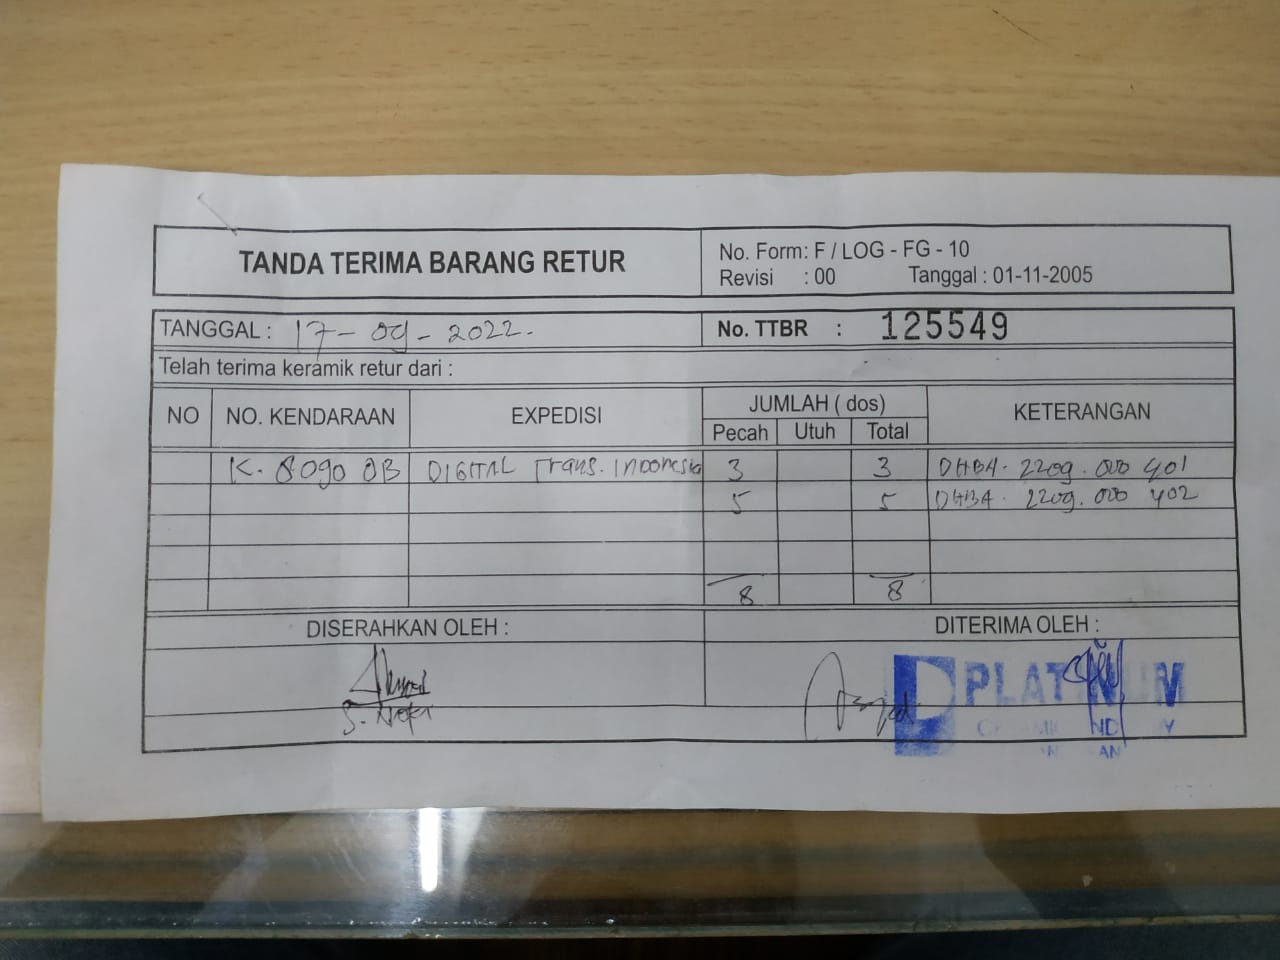 TANDA TERIMA BARANG RETUR
No. Form: F / LOG - FG - 10
Revisi : 00 Tanggal : 01-11-2005
TANGGAL : 17-09-2022.
No. TTBR : 125549
Telah terima keramik retur dari :
NO NO. KENDARAAN EXPEDISI JUMLAH ( dos) KETERANGAN
Pecah Utuh Total
K. 8090 OB DIGITAL Trans. Indonesia 3 3 DHBA. 2209. 000 401
5 5 DHBA. 2209. 000 402
8 8
DISERAHKAN OLEH : DITERIMA OLEH :
PLATINUM